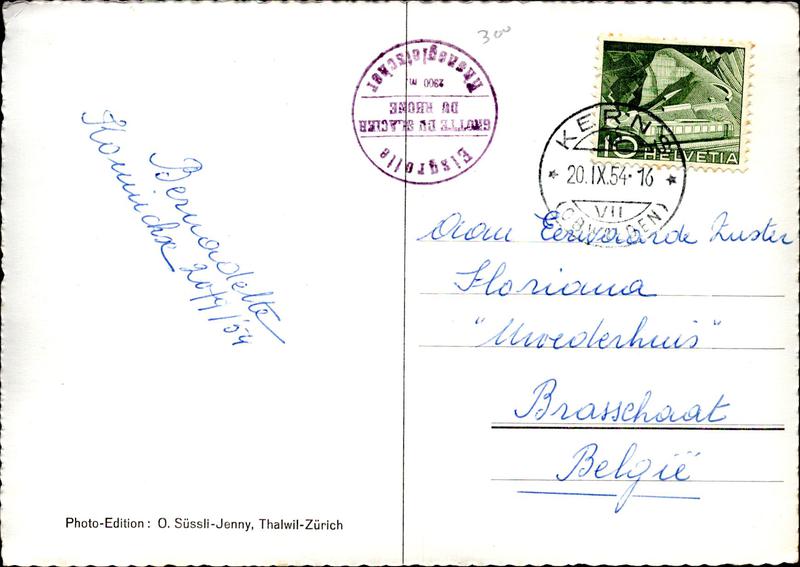 300
Eisgrotte
GROTTE DU GLACIER
DU RHONE
2300 m.
Rhonegletscher
10 HELVETIA
KERNS
20.IX.54-16
VII
(OBWALDEN)
Bernadette
20/9/'54
Aan Eerwaarde Zuster
Floriana
"Moederhuis"
Brasschaat
België
Photo-Edition: O. Süssli-Jenny, Thalwil-Zürich